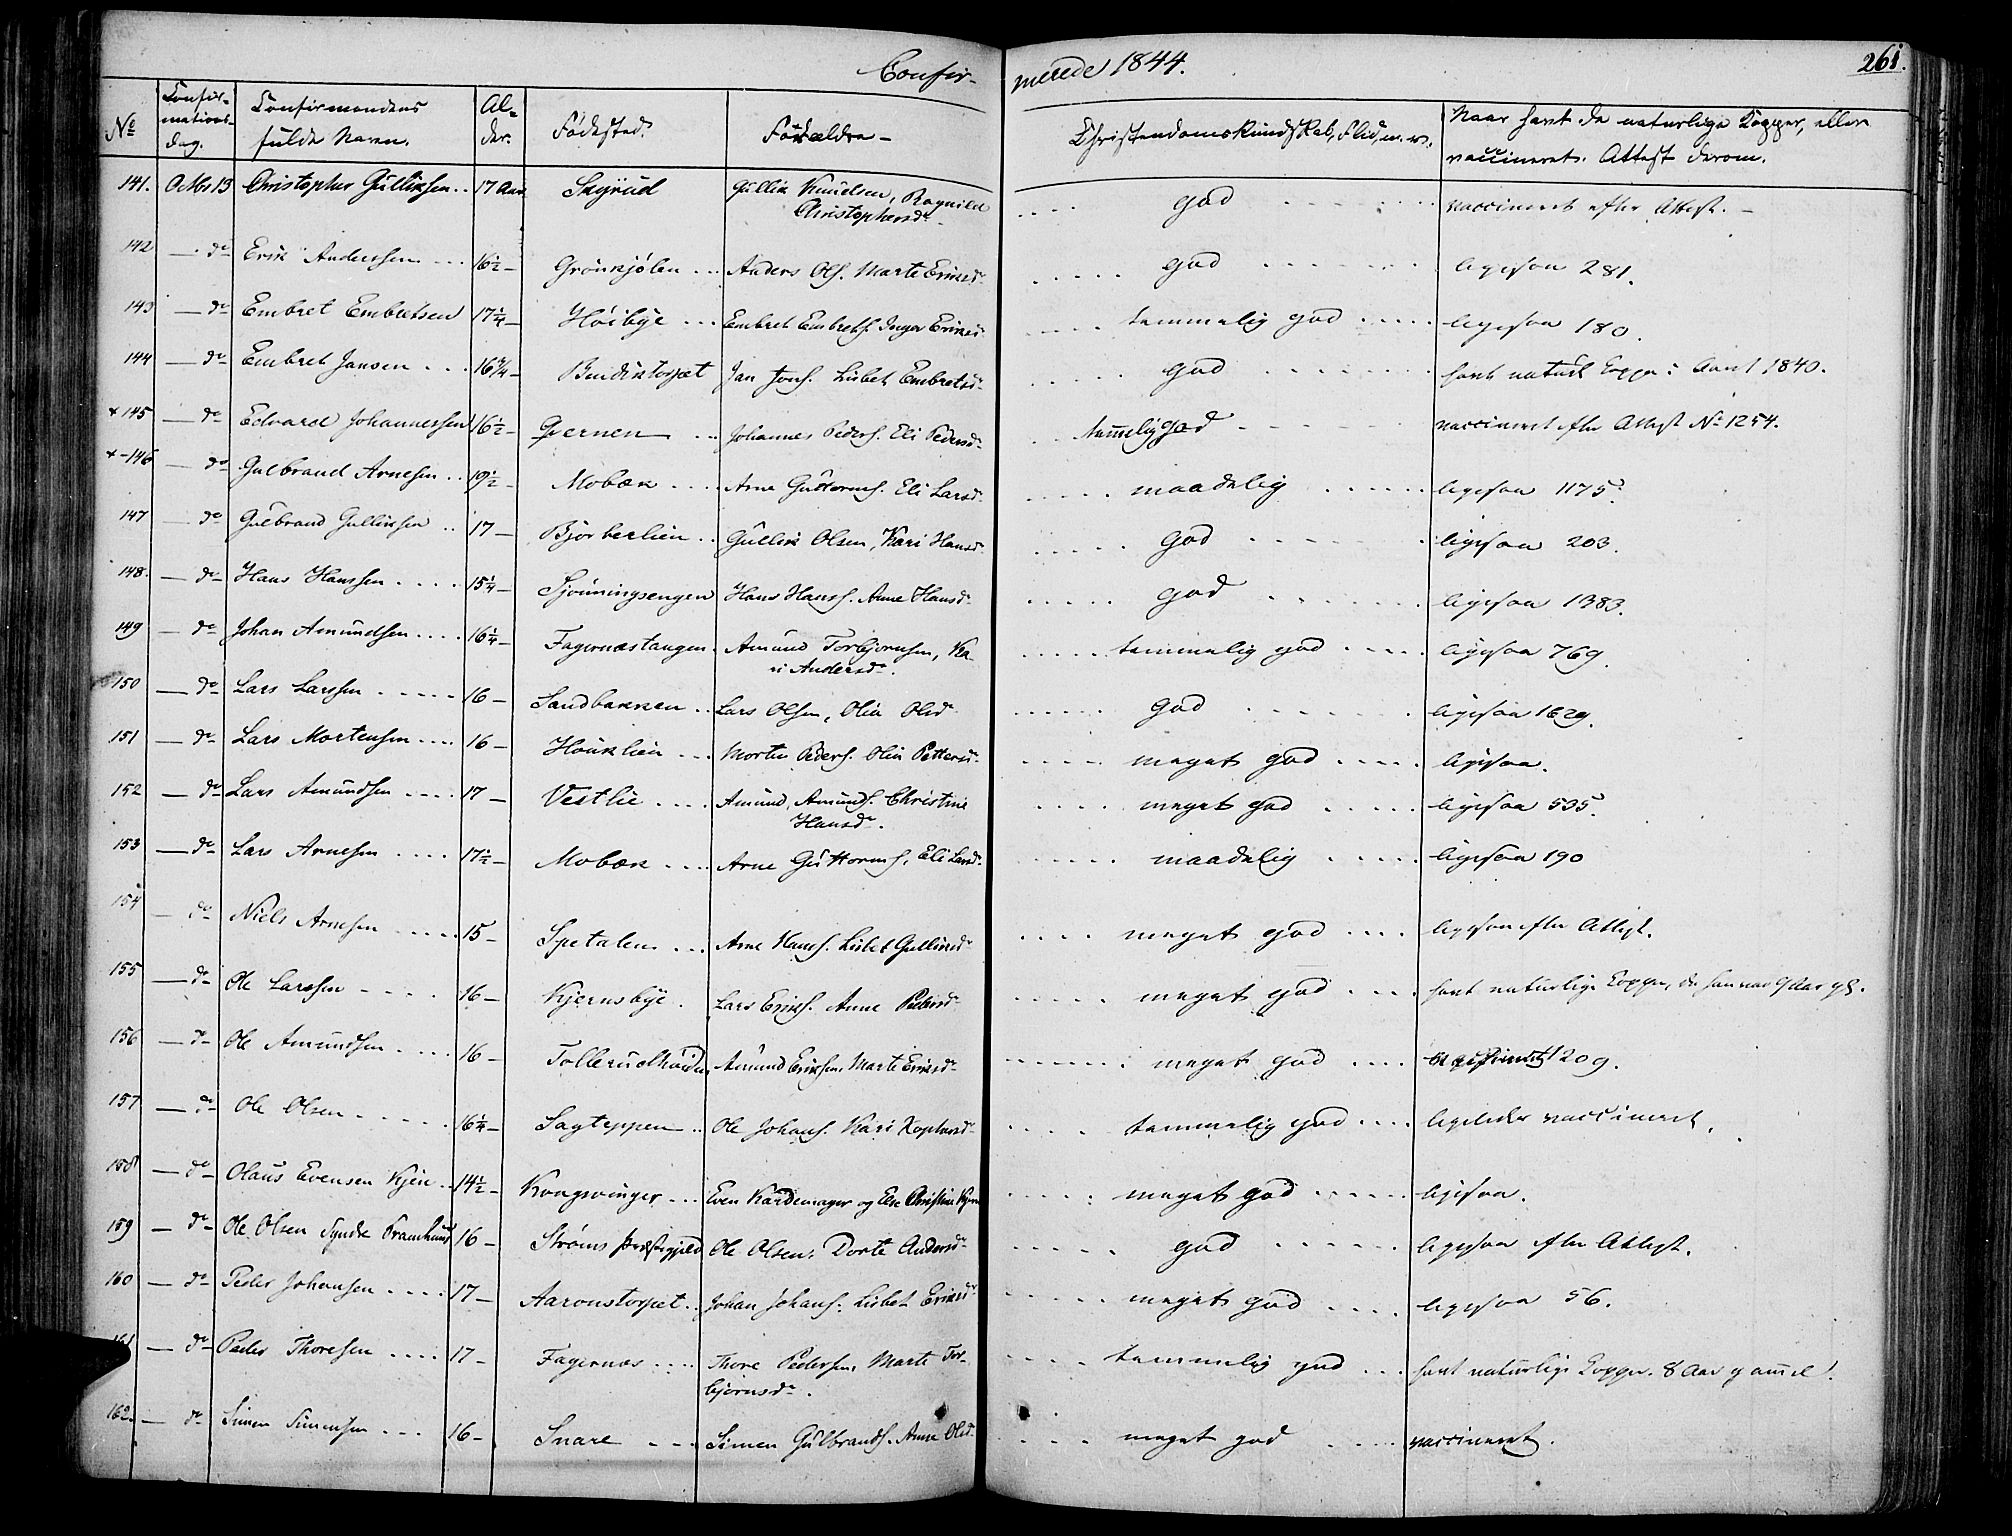 Confir- merede 1844. 261.
No Confir- mations- dag. Confirmandens fulde Navn. Al- der. Fødested. Forældre - Christendomskundskab, Flid, m. v. Naar havt de naturlige Kopper, eller vaccineret. Attest derom.
141. Octbr 13 Christopher Gulliksen .. 17 Aar Skyrud Gullik Knudsen, Ragnild Christophersd. .... god ...... vaccineret efter Attest. -
142 — do Erik Anderssen ... 16½ - Grønkjølen ... Anders Ols. Marte Eriksd. .... god ...... ligesaa 281.
143 — do Embret Embretsen 17¼ - Høibye ... Embret Embrets. Inger Eriksd. .... temmelig god ..... ligesaa 180.
144 — do Embret Jansen ... 16¾ - Bendiktorpet Jan Jons. Lisbet Embretsd. ..... god ...... havt naturl Kopper i Aaret 1840.
+ 145 — do Edvard Johannessen 16½ - Qvernen ... Johannes Peders. Eli Pedersd. .. temmelig god ...... vaccineret efter Attest No 1254.
+ -146 — do Gulbrand Arnesen .. 19½ - Mobæk .... Arne Guttorms. Eli Larsd. ..... maadelig ..... ligesaa 1175.
147 — do Gulbrand Gulliksen .. 17 - Bjørberlien .. Gullik Olsen, Kari Hansd. ..... god ...... ligesaa 203.
148. — do Hans Hanssen .... 15¼ - Sjønningsengen Hans Hanss. Anne Hansd. ..... god ...... ligesaa 1383.
149 — do Johan Amundsen .... 16¼ - Fagernæstangen. Amund Torbjørnsen, Ka- ri Andersd. ..... temmelig god .... ligesaa 769.
150 — do Lars Larssen ..... 16 - Sandbakken .. Lars Olsen, Olia Olsd. ..... god ...... ligesaa 1629.
151 — do Lars Mortensen .... 16 - Houklien ... Morten Peders. Olia Pettersd. .... meget god .... ligesaa.
152 — do Lars Amundsen .... 17 - Vestlie .... Amund Amunds. Christine Hansd. .... meget god ..... ligesaa 505.
153 — do Lars Arnesen .... 17½ - Mobæk .... Arne Guttorms. Eli Larsd. ..... maadelig ..... ligesaa 190
154 — do Niels Arnesen ..... 15 - Spetalen ... Arne Hans. Lisbet Gulliksd. .... meget god .... ligesaa efter Attest.
155 — do Ole Larssen .... 16 - Kjernsbye . Lars Eriks. Anne Pedersd. ..... meget god .... havt naturlige Kopper, da han var
156 — do Ole Amundsen .... 16 - Tollerudhøiden Amund Eriksen, Marte Eriksd. ....... meget god .... 1209.
157 — do Ole Olsen ..... 16¼ - Sagteppen .. Ole Johans. Kari .... temmelig god .... ligeledes vaccineret.
158 — do Olaus Evensen Kjen .. 14½ - Kongsvinger ... Even Kardemager og Else Christine Kjen .... meget god ..... ligesaa.
159 — do Ole Olsen Syndre 16 - Strøms Præstegjeld Ole Olsen, Dorte Andersd. ..... god ..... ligesaa efter Attest.
160 — do Peder Johansen .... 17 - Aaronstorpet .. Johan Johans. Lisbet Eriksd. .... meget god .... ligesaa 56.
161 — do Peder Thoresen .... 17 - Fagernæs .... Thore Pedersen, Marte Tor- bjørnsd. .... temmelig god ... havt naturlige Kopper. 8 Aar gammel.
162. — do Simen Simensen ... 16 - Snare ... Simen Gulbrands. Anne Olsd. .... meget god .... vaccineret.